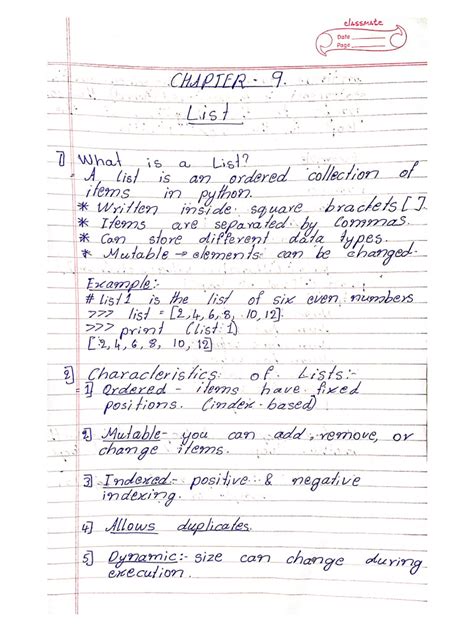 classmate
Date
Page
CHAPTER - 9.
List
1] What is a List?
A list is an ordered collection of
items in python.
* Written inside square brackets [ ].
* Items are separated by commas.
* Can store different data types.
* Mutable → elements can be changed.
Example:-
# list 1 is the list of six even numbers
>>> list = [2,4,6,8,10,12]
>>> print (list 1)
[2,4,6,8,10,12]
2] Characteristics of Lists:-
1] Ordered - items have fixed
positions. (index-based)
2] Mutable- you can add, remove, or
change items.
3] Indexed- positive & negative
indexing.
4] Allows duplicates.
5] Dynamic:- size can change during
execution.